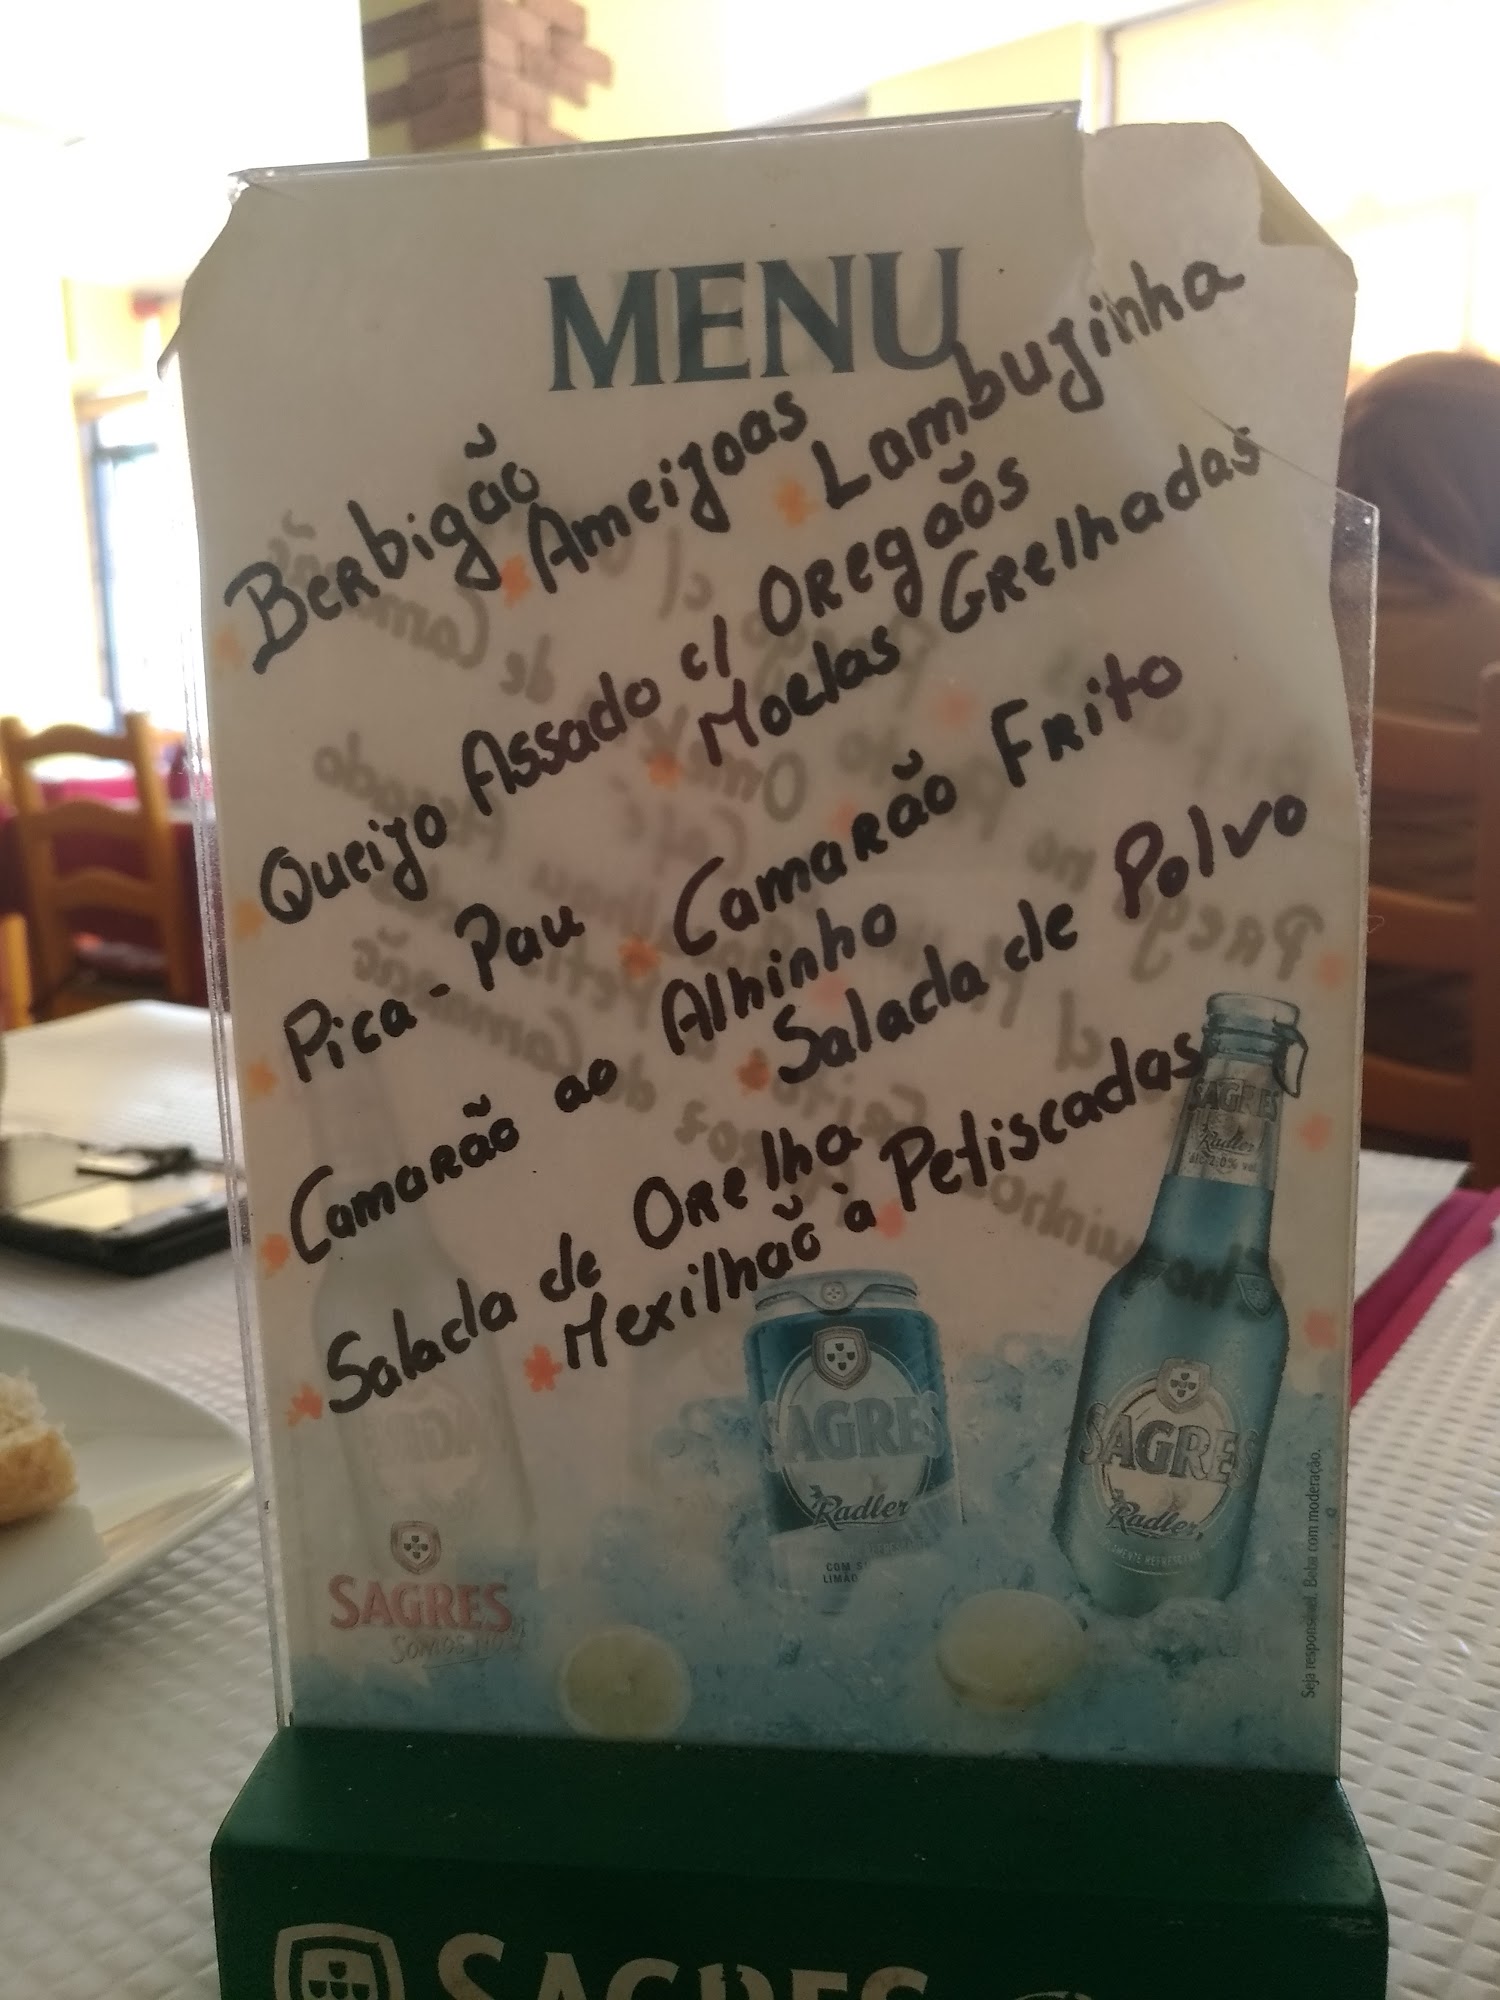 MENU
Berbigão
Ameijoas
Lambujinha
Queijo Assado c/ Oregaõs
Moelas Grelhadas
Pica-Pau
Camarão Frito
Camarão ao Alhinho
Salada de Polvo
Salada de Orelha
Mexilhaõ à Petiscadas
SAGRES
Radler
SAGRES
Radler
COM S
LIMÃO
SAGRES
Radler
SAGRES
SOMOS NÓS
Seja responsável. Beba com moderação.
SAGRES